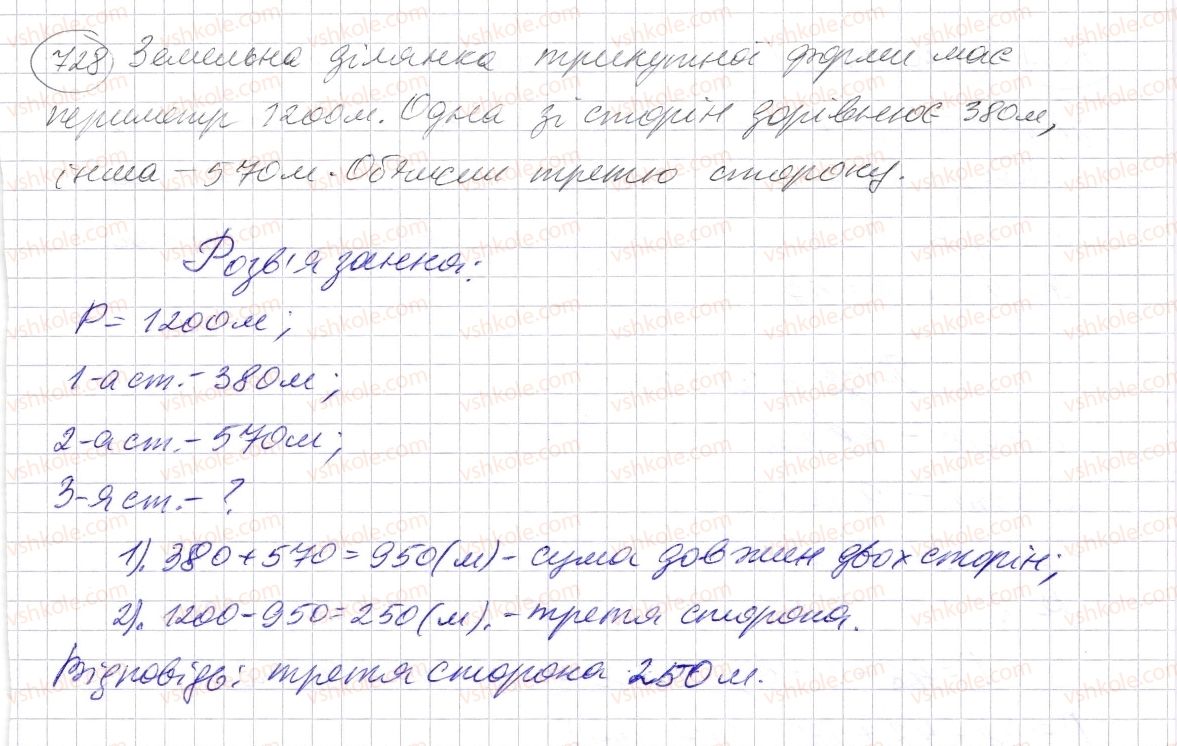 728 Земельна ділянка трикутної форми має
периметр 1200м. Одна зі сторін дорівнює 380м,
інша – 570м. Обчисли третю сторону.
Розв'язання:
P = 1200м;
1-а ст. – 380м;
2-а ст. – 570м;
3-я ст. – ?
1). 380 + 570 = 950 (м) – сума довжин двох сторін;
2). 1200 – 950 = 250 (м). – третя сторона.
Відповідь: третя сторона 250м.
vshkole.com